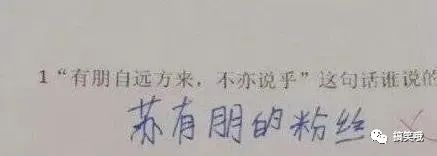 1“有朋自远方来，不亦说乎”这句话谁说的
苏有朋的粉丝
搞笑哦